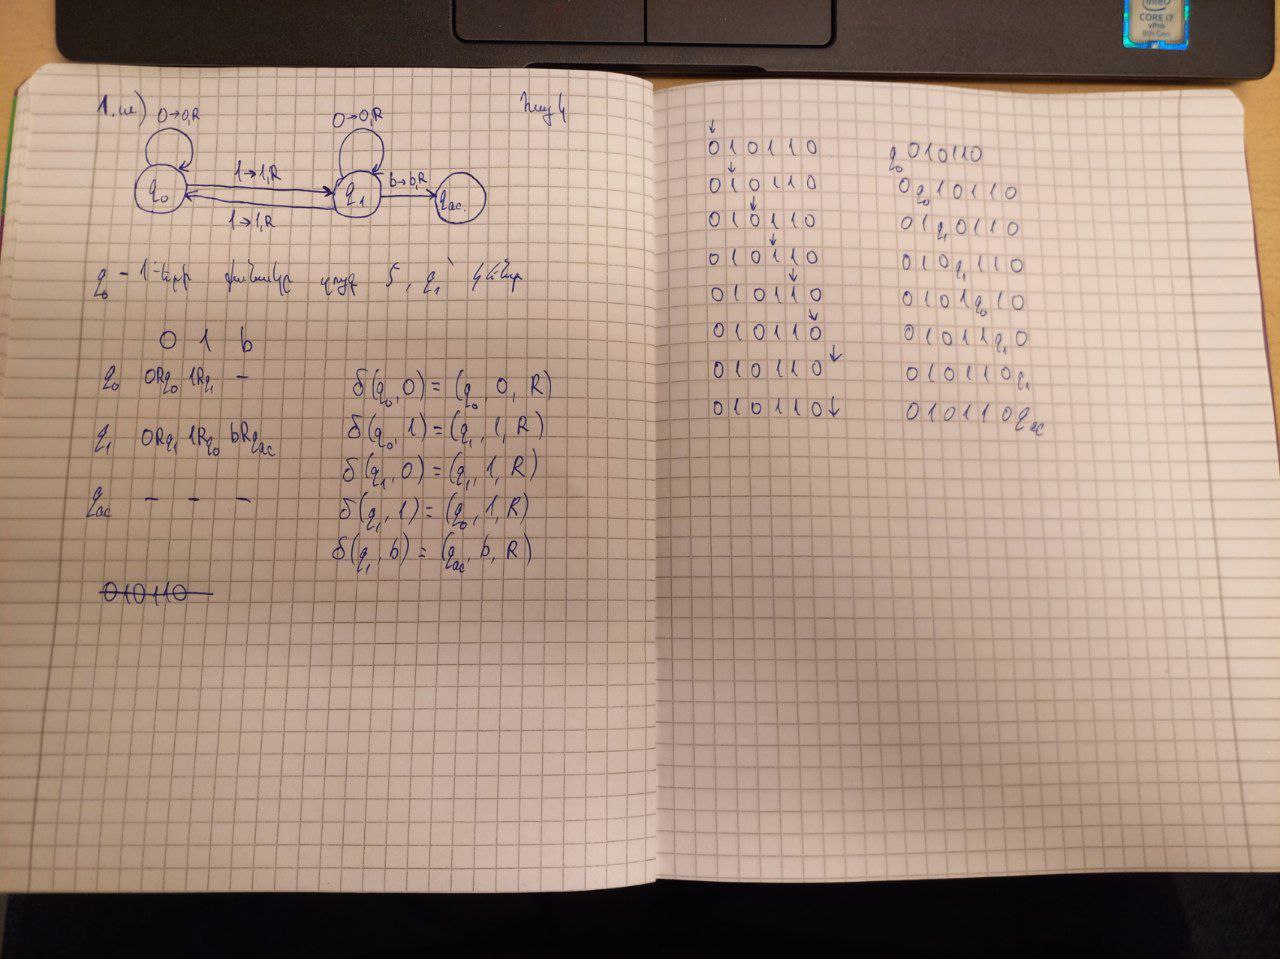 intel
CORE i7
vPro
8th Gen
1.ա)
0→0,R
0→0,R
1→1,R
b→b,R
q₀
q₁
qac.
1→1,R
q₀ - 1-երի քանակը զույգ է, q₁՝ կենտ
0 1 b
q₀ 0Rq₀ 1Rq₁ -
q₁ 0Rq₁ 1Rq₀ bRqac
qac - - -
δ(q₀, 0) = (q₀, 0, R)
δ(q₀, 1) = (q₁, 1, R)
δ(q₁, 0) = (q₁, 1, R)
δ(q₁, 1) = (q₀, 1, R)
δ(q₁, b) = (qac, b, R)
010110
↓
010110 q₀010110
↓
010110 0q₀10110
↓
010110 01q₁0110
↓
010110 010q₁110
↓
010110 0101q₀10
↓
010110 01011q₁0
↓
010110 010110q₁
010110↓ 010110qac